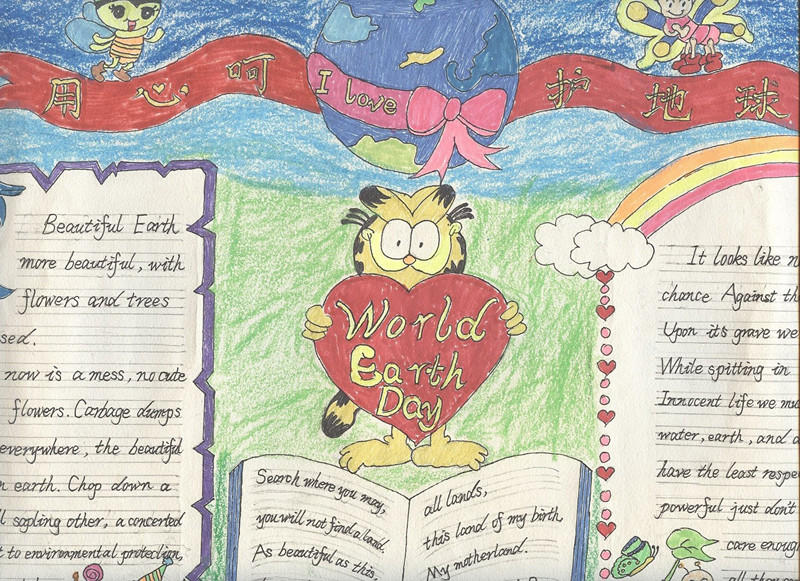 用心呵
I love
护地球
Beautiful Earth
more beautiful, with
flowers and trees
sed.
now is a mess, no cute
flowers. Carbage dumps
everywhere, the beautiful
n earth. Chop down a
l sapling other, a concerted
t to environmental protection,
World
Earth
Day
Search where you may,
you will not find a land.
As beautiful as this.
all lands,
this land of my birth,
My motherland.
It looks like n
chance Against th
Upon it's grave we
While spitting in
Innocent life we mu
water, earth, and a
have the least respe
powerful just don't
care enoug